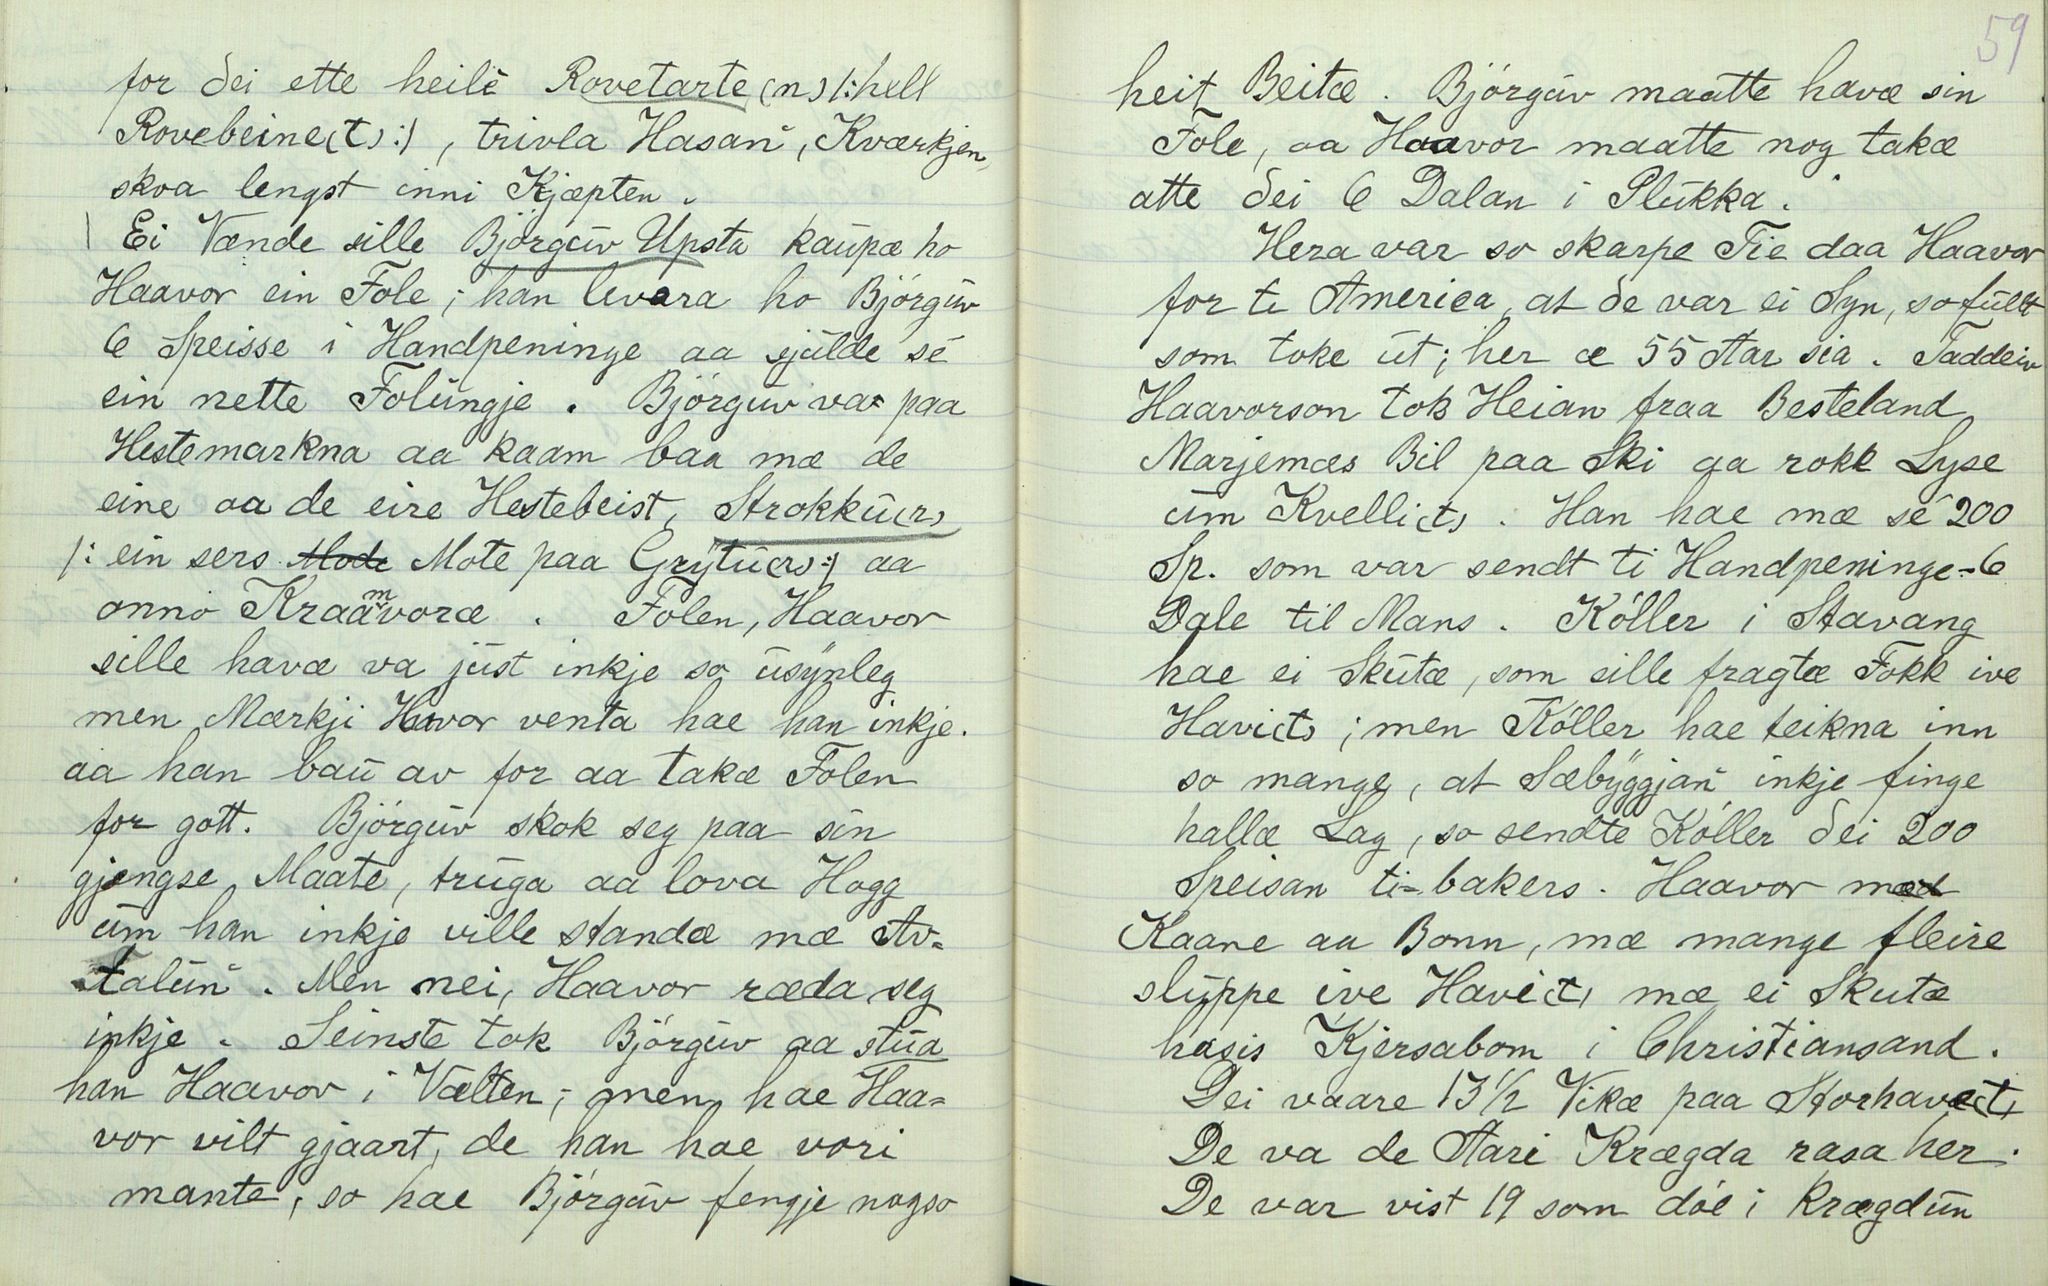 for dei ette heile Rovetarte(n) /: hell
Rovebeine(t) :/, trivla Hasan, Kværkjen,
skoa lengst inni Kjæpten.
Ei Vænde sille Bjørgŭv Upsta kaŭpæ ho
Haavor ein Fole; han levera ho Bjørgŭv
6 Speisse i Handpeninge aa sjŭlde sé
ein nette Folŭngje. Bjørgŭv var paa
Hestemarkna aa kaam baa mæ de
eine aa de eire Hestebeist, Strokkŭ(r)
/: ein sers Mote paa Grÿtŭ(r) :/ aa
anno Kraamvoræ. Folen, Haavor
sille havæ va jŭst inkje so ŭsÿnleg
men Mærkji Havor venta hae han inkje.
aa han baŭ av for aa takæ Folen
for gott. Bjørgŭv skok seg paa sin
gjengse Maate, trŭga aa lova Hogg
ŭm han inkje ville standæ mæ Av-
talŭn. Men nei, Haavor ræda seg
inkje. Seinste tok Bjørgŭv aa stŭa
han Haavor i Vælten; men hae Haa-
vor vilt gjaart, de han hae vori
mante, so hae Bjørgŭv fengje nogso
59
heit Beitæ. Bjørgŭv maatte havæ sin
Fole, aa Haavor maatte nog takæ
atte dei 6 Dalan i Plŭkka.
Hera var so skarpe Tie daa Haavor
for te America, at de var ei Syn, so fŭllt
som toke ŭt; her æ 55 Aar sia. Taddeiv
Haavorson tok Heian fraa Besteland
Marjemæs Bil paa Ski aa rokk Lyse
ŭm Kvelli(t). Han hae mæ sé 200
Sp. som var sendt ti Handpeninge - 6
Dale til Mans. Køller i Stavang
hae ei Skŭtæ, som sille fragtæ Fokk ive
Havi(t); men Køller hae teikna inn
so mange, at Sæbÿggjan inkje finge
hallæ Lag, so sendte Køller dei 200
Speisan ti-bakers. Haavor mæ
Kaane aa Bonn, mæ mange fleire
slŭppe ive Have(t) mæ ei Skutæ
hasis Kjersabom i Christiansand.
Dei vaare 13 1/2 Vikæ paa Storhave(t)
De va de Aari Krægda rasa her.
De var vist 19 som døe i Krægdŭn